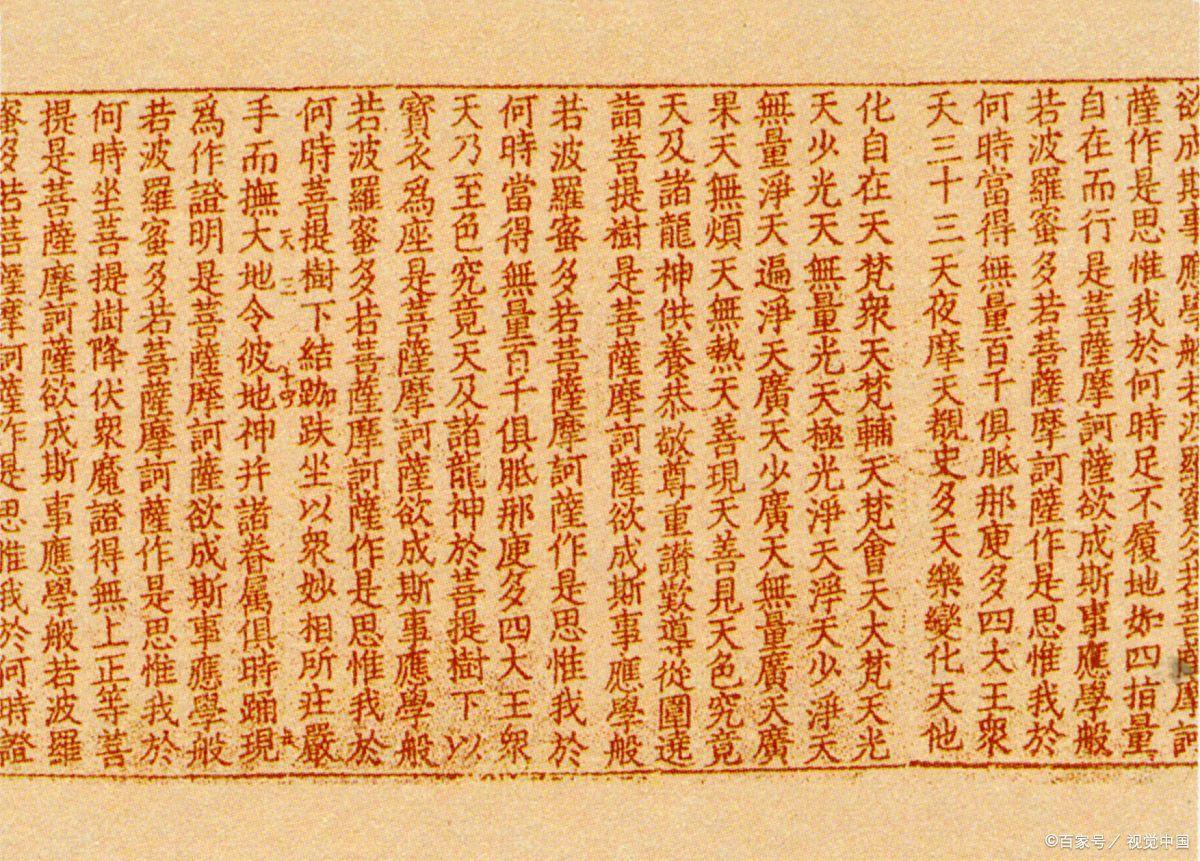 欲成斯事應學般若波羅蜜多若菩薩摩訶
薩作是思惟我於何時足不履地如四指量
自在而行是菩薩摩訶薩欲成斯事應學般
若波羅蜜多若菩薩摩訶薩作是思惟我於
何時當得無量百千俱胝那庾多四大王衆
天三十三天夜摩天覩史多天樂變化天他
化自在天梵衆天梵輔天梵會天大梵天光
天少光天無量光天極光淨天淨天少淨天
無量淨天遍淨天廣天少廣天無量廣天廣
果天無煩天無熱天善現天善見天色究竟
天及諸龍神供養恭敬尊重讚歎導從圍遶
詣菩提樹是菩薩摩訶薩欲成斯事應學般
若波羅蜜多若菩薩摩訶薩作是思惟我於
何時當得無量百千俱胝那庾多四大王衆
天乃至色究竟天及諸龍神於菩提樹下以
寶衣爲座是菩薩摩訶薩欲成斯事應學般
若波羅蜜多若菩薩摩訶薩作是思惟我於
何時菩提樹下結跏趺坐以衆妙相所莊嚴
天三
手而撫大地令彼地神并諸眷屬俱時踊現
爲作證明是菩薩摩訶薩欲成斯事應學般
若波羅蜜多若菩薩摩訶薩作是思惟我於
何時坐菩提樹降伏衆魔證得無上正等菩
提是菩薩摩訶薩欲成斯事應學般若波羅
蜜多若菩薩摩訶薩作是思惟我於何時證
©百家号／视觉中国